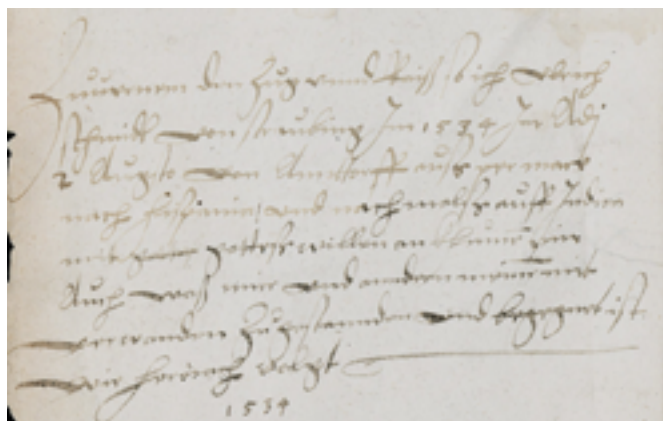 Zuuernemen den Zug unnd Raiß so ich Ulrich
Schmidl von straubing Im 1534 Jar Adj
2 Augusto von Anttorff auß per mare
nach hispania, und nachmolß auff Indiea
mit gottes willen ankhumen bin
Auch waß mir und anndern meinen mit
verwanden Zugestannden und begegnet ist
wie hernach volgt
1534